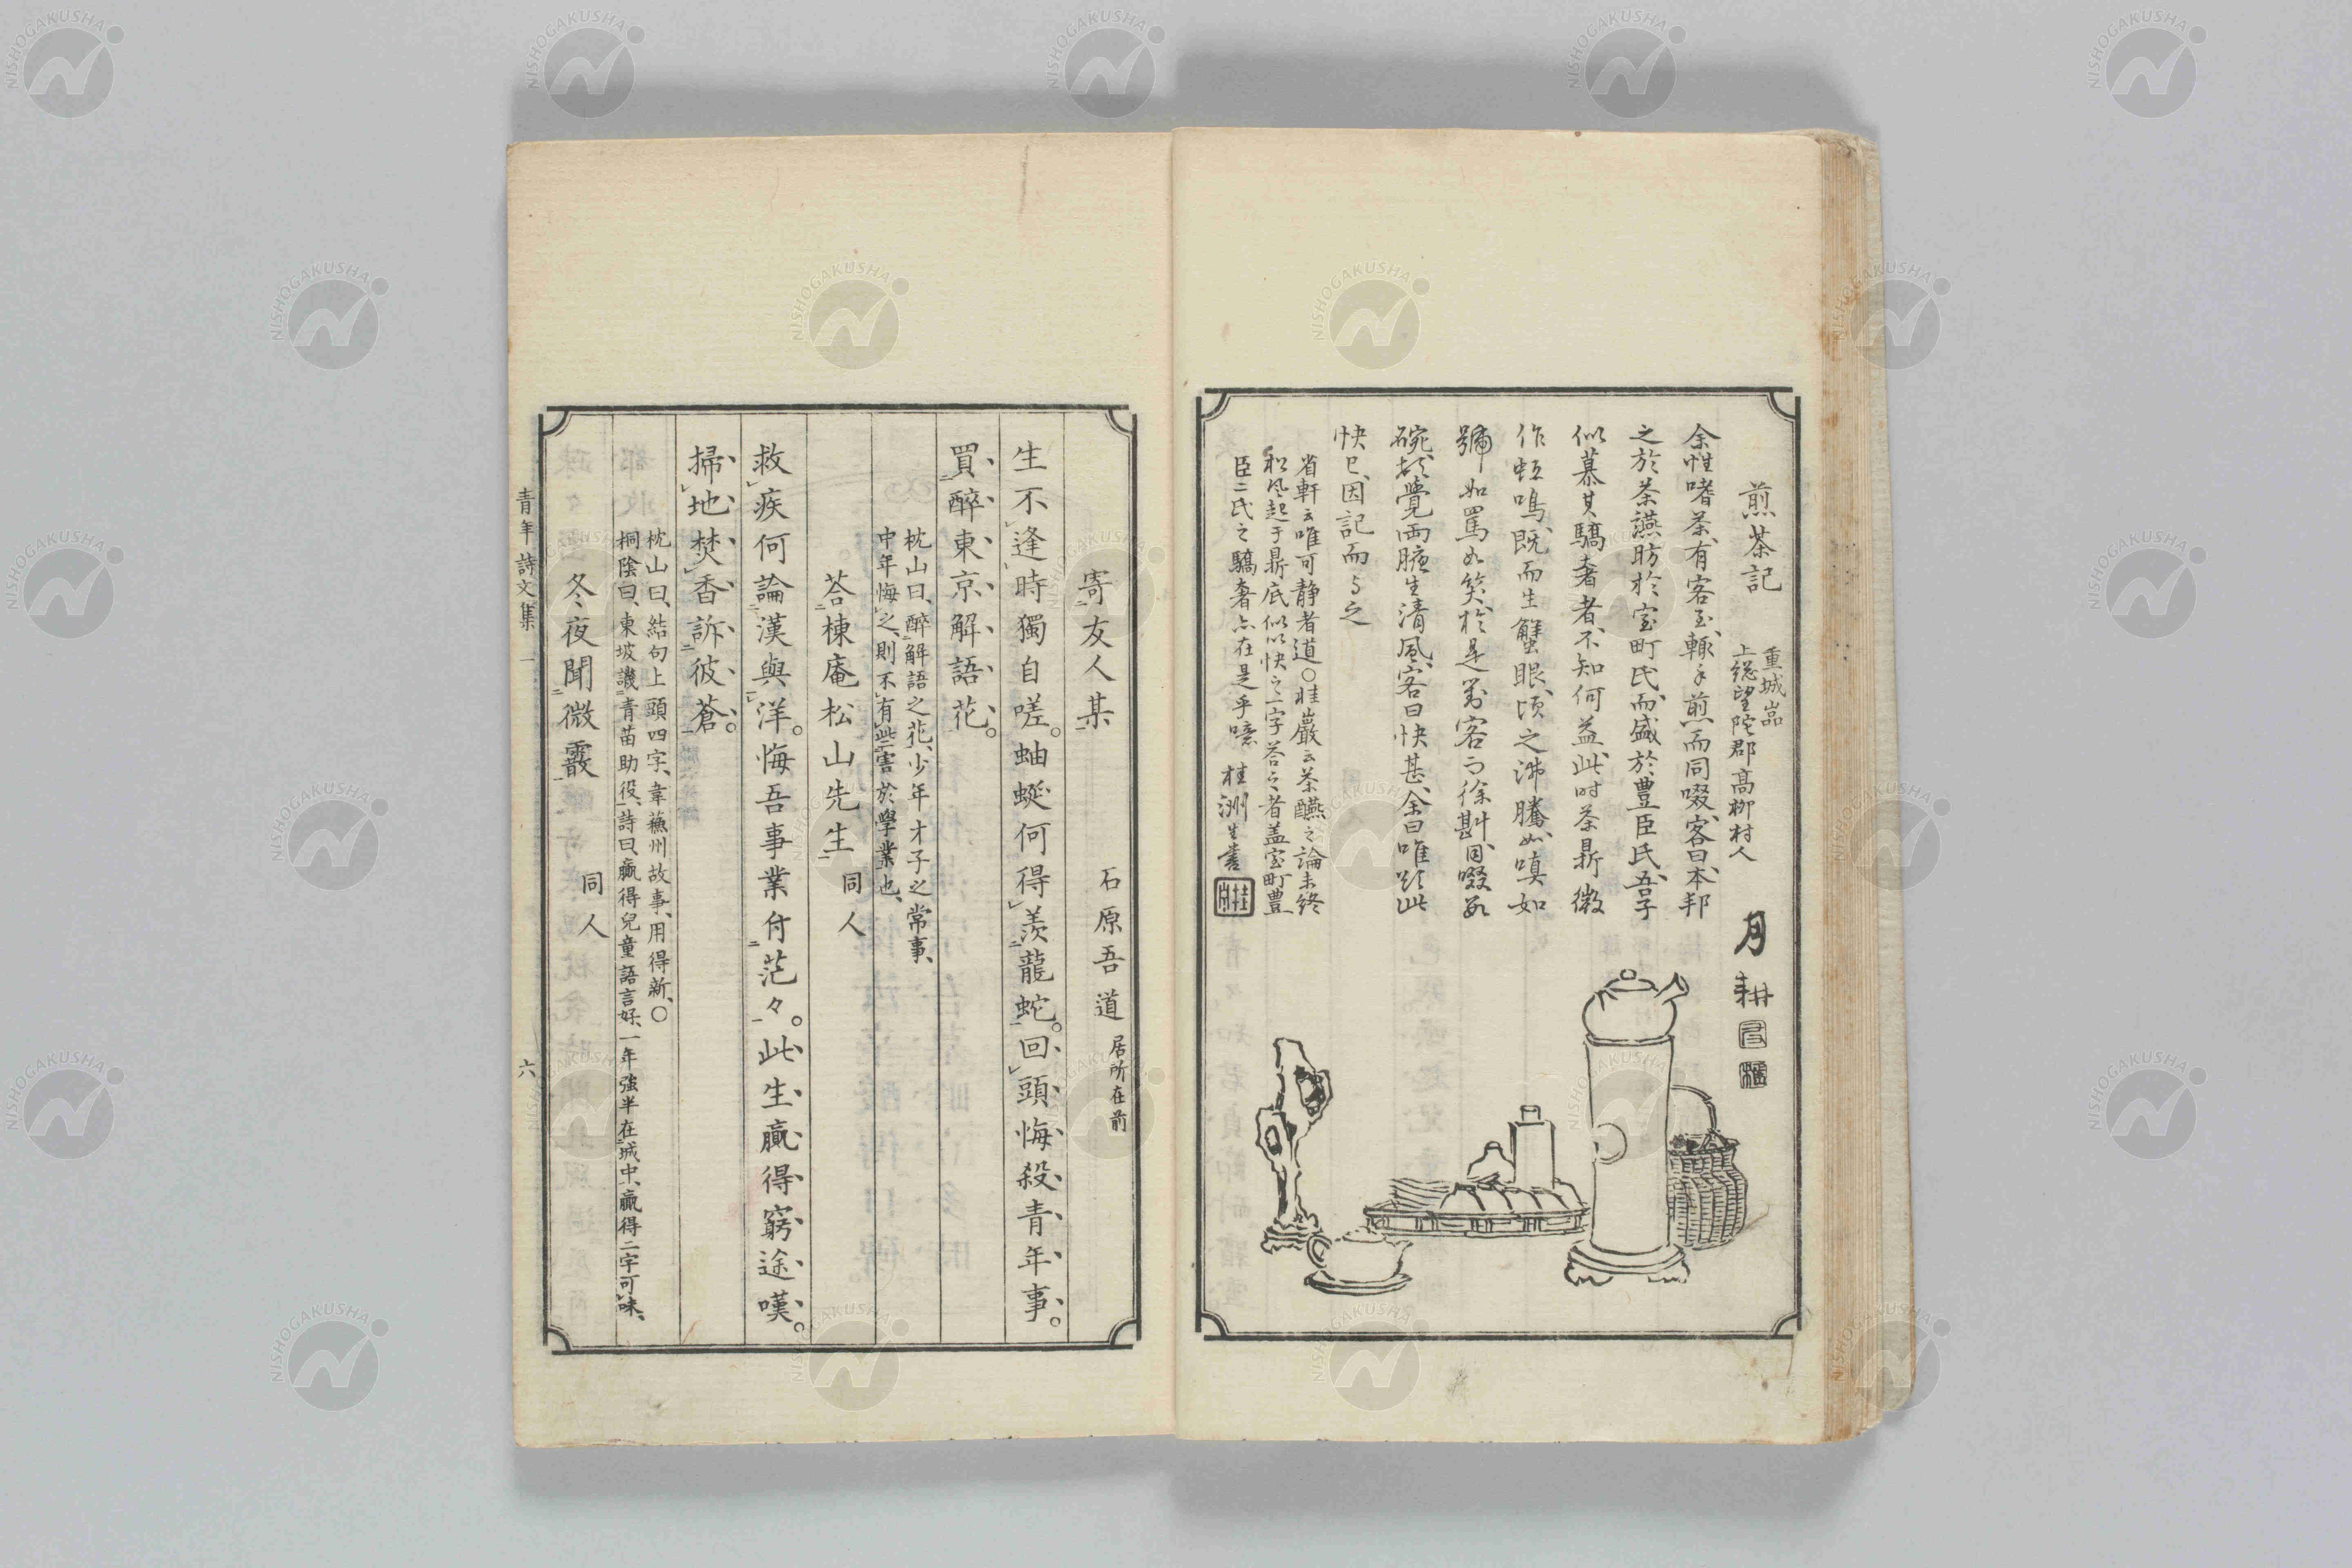 煎茶記
重城嵓
上総望陀郡高柳村人
余性嗜茶、有客至、輙手煎而同啜、客曰、本邦
之於茶讌昉於室町氏、而盛於豊臣氏、吾子
似慕其驕奢者、不知何益、此时茶鼎微
作蚯鳴、既而生蟹眼、頃之沸騰、如嗔如
號如罵如笑、於是対客而徐斟、同啜数
碗、頓覺両腋生清風、客曰快甚、余曰唯〻此
快已、因記而与之
省軒云唯可静者道〇桂巖云茶醼之論未終
松风起于鼎底似以快之一字荅之者盖室町豊
臣二氏之驕奢亦在是乎噫
桂洲生書
月耕
寄友人某
石原吾道
居所在前
生不逢時獨自嗟。蚰蜒何得羨龍蛇。回頭悔殺青年事。
買醉東京解語花。
枕山曰、醉解語之花、少年才子之常事、
中年悔之、則不有些害於學業也、
荅棟庵松山先生
同人
救疾何論漢與洋。悔吾事業付茫々。此生贏得窮途嘆。
掃地焚香訴彼蒼。
枕山曰、結句上頭四字、韋蘓州故事、用得新、〇
桐陰曰、東坡譏青苗助役、詩曰、贏得兒童語言好、一年強半在城中、贏得二字可味、
冬夜聞微霰
同人
青年詩文集
一
六
NISHOGAKUSHA